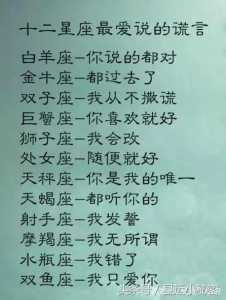 十二星座最爱说的谎言
白羊座-你说的都对
金牛座-都过去了
双子座-我从不撒谎
巨蟹座-你喜欢就好
狮子座-我会改
处女座-随便就好
天秤座-你是我的唯一
天蝎座-都听你的
射手座-我发誓
摩羯座-我无所谓
水瓶座-我错了
双鱼座-我只爱你